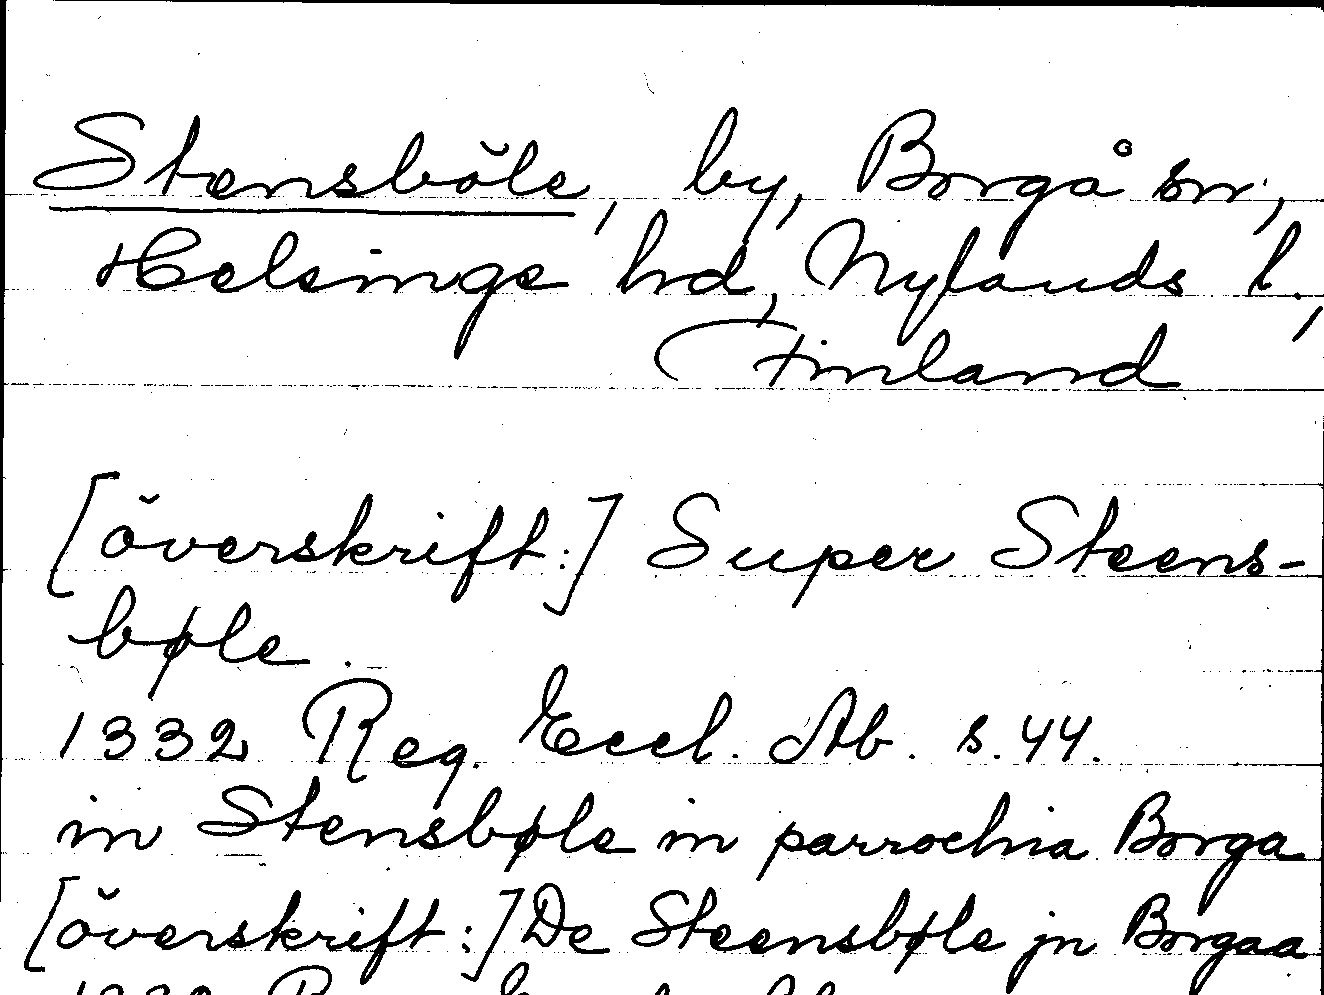 Stensböle, by, Borgå sn,
Helsinge hd, Nylands l.,
Finland
[överskrift:] Super Steens-
bøle.
1332 Reg. Eccl. Ab. s. 44.
in Stensbøle in parrochia Borga
[överskrift:] De Steensbøle jn Borgaa